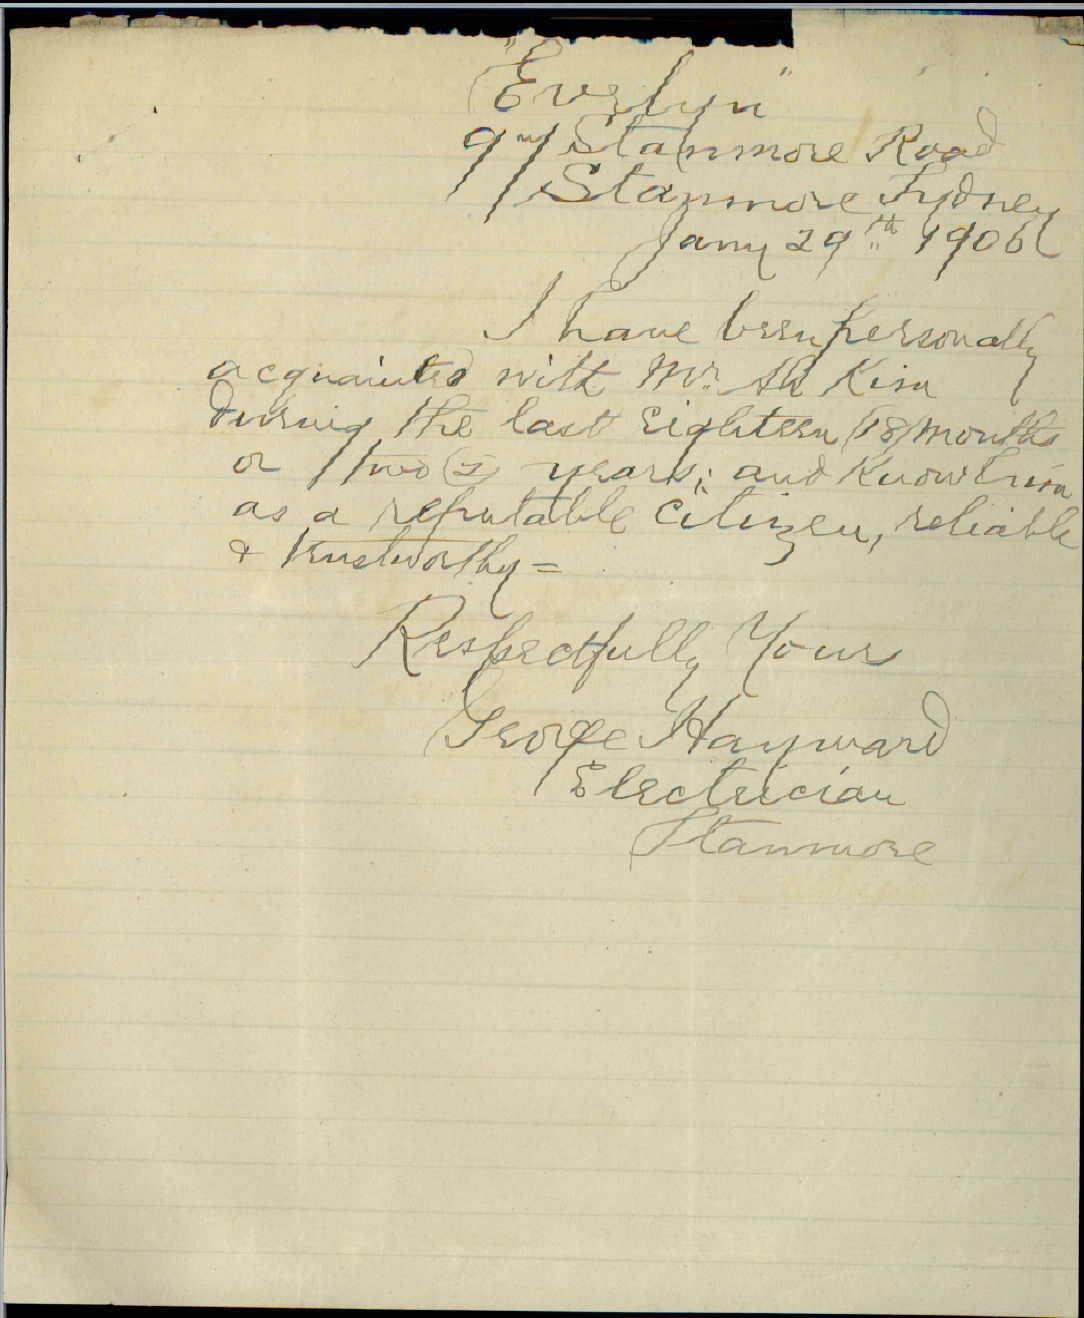 "Evelyn"
97 Stanmore Road
Stanmore Sydney
Jany 29th 1906
I have been personally
acquainted with Mr. Ah Kin
during the last Eighteen (18) months
or two (2) years; and know him
as a reputable citizen, reliable
& trustworthy =
Respectfully Yours
George Hayward
Electrician
Stanmore